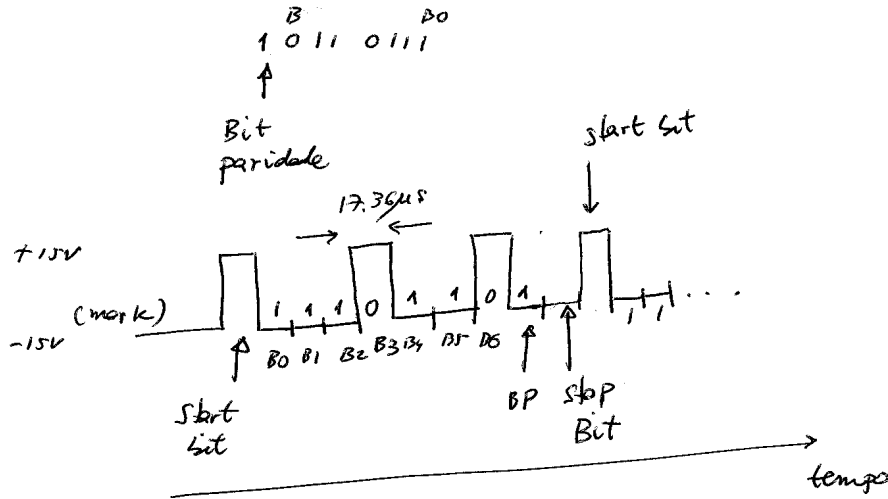 B B0
1 0 1 1 0 1 1 1
Bit
paridade
start bit
17.36µs
+15V
1 1 1 0 1 1 0 1
(mark)
1 1 . . .
-15V
B0 B1 B2 B3 B4 B5 B6
Start
bit
BP
Stop
Bit
tempo